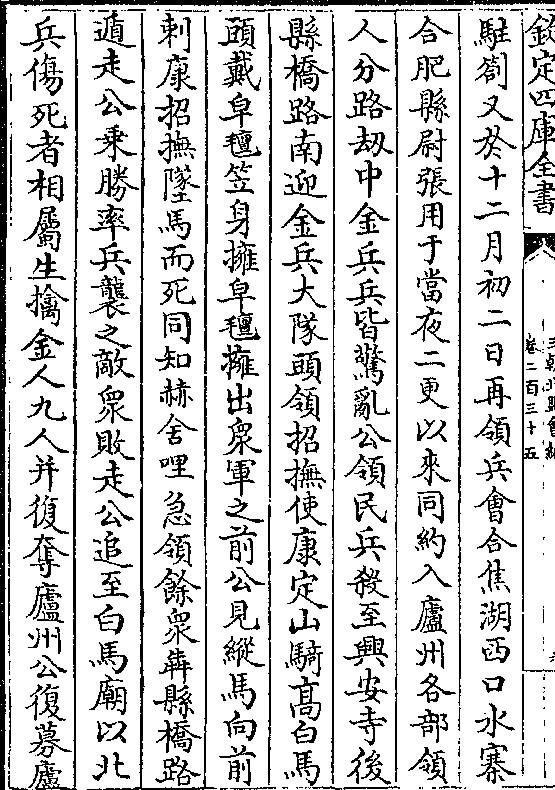 欽定四庫全書
三朝北盟會編
卷二百三十五
駐劄又於十二月初二日再領兵會合焦湖西口水寨
合肥縣尉張用于當夜二更以來同約入廬州各部領
人分路刼中金兵兵皆驚亂公領民兵殺至興安寺後
縣橋路南迎金兵大隊頭領招撫使康定山騎髙白馬
頭戴皁氊笠身擁皁氊擁出衆軍之前公見縱馬向前
刺康招撫墜馬而死同知赫舍哩急領餘衆犇縣橋路
遁走公乘勝率兵襲之敵衆敗走公追至白馬廟以北
兵傷死者相屬生擒金人九人并復奪廬州公復募廬